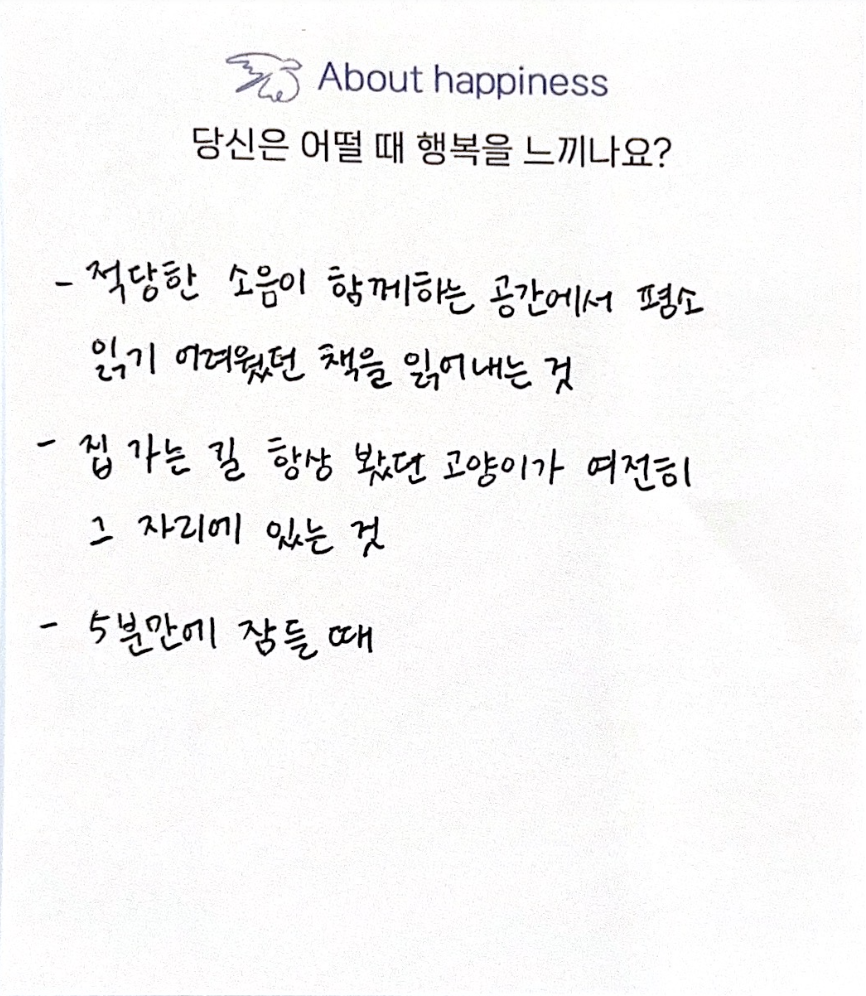 About happiness
당신은 어떨 때 행복을 느끼나요?
- 적당한 소음이 함께하는 공간에서 평소
읽기 어려웠던 책을 읽어내는 것
- 집 가는 길 항상 봤던 고양이가 여전히
그 자리에 있는 것
- 5분만에 잠들 때